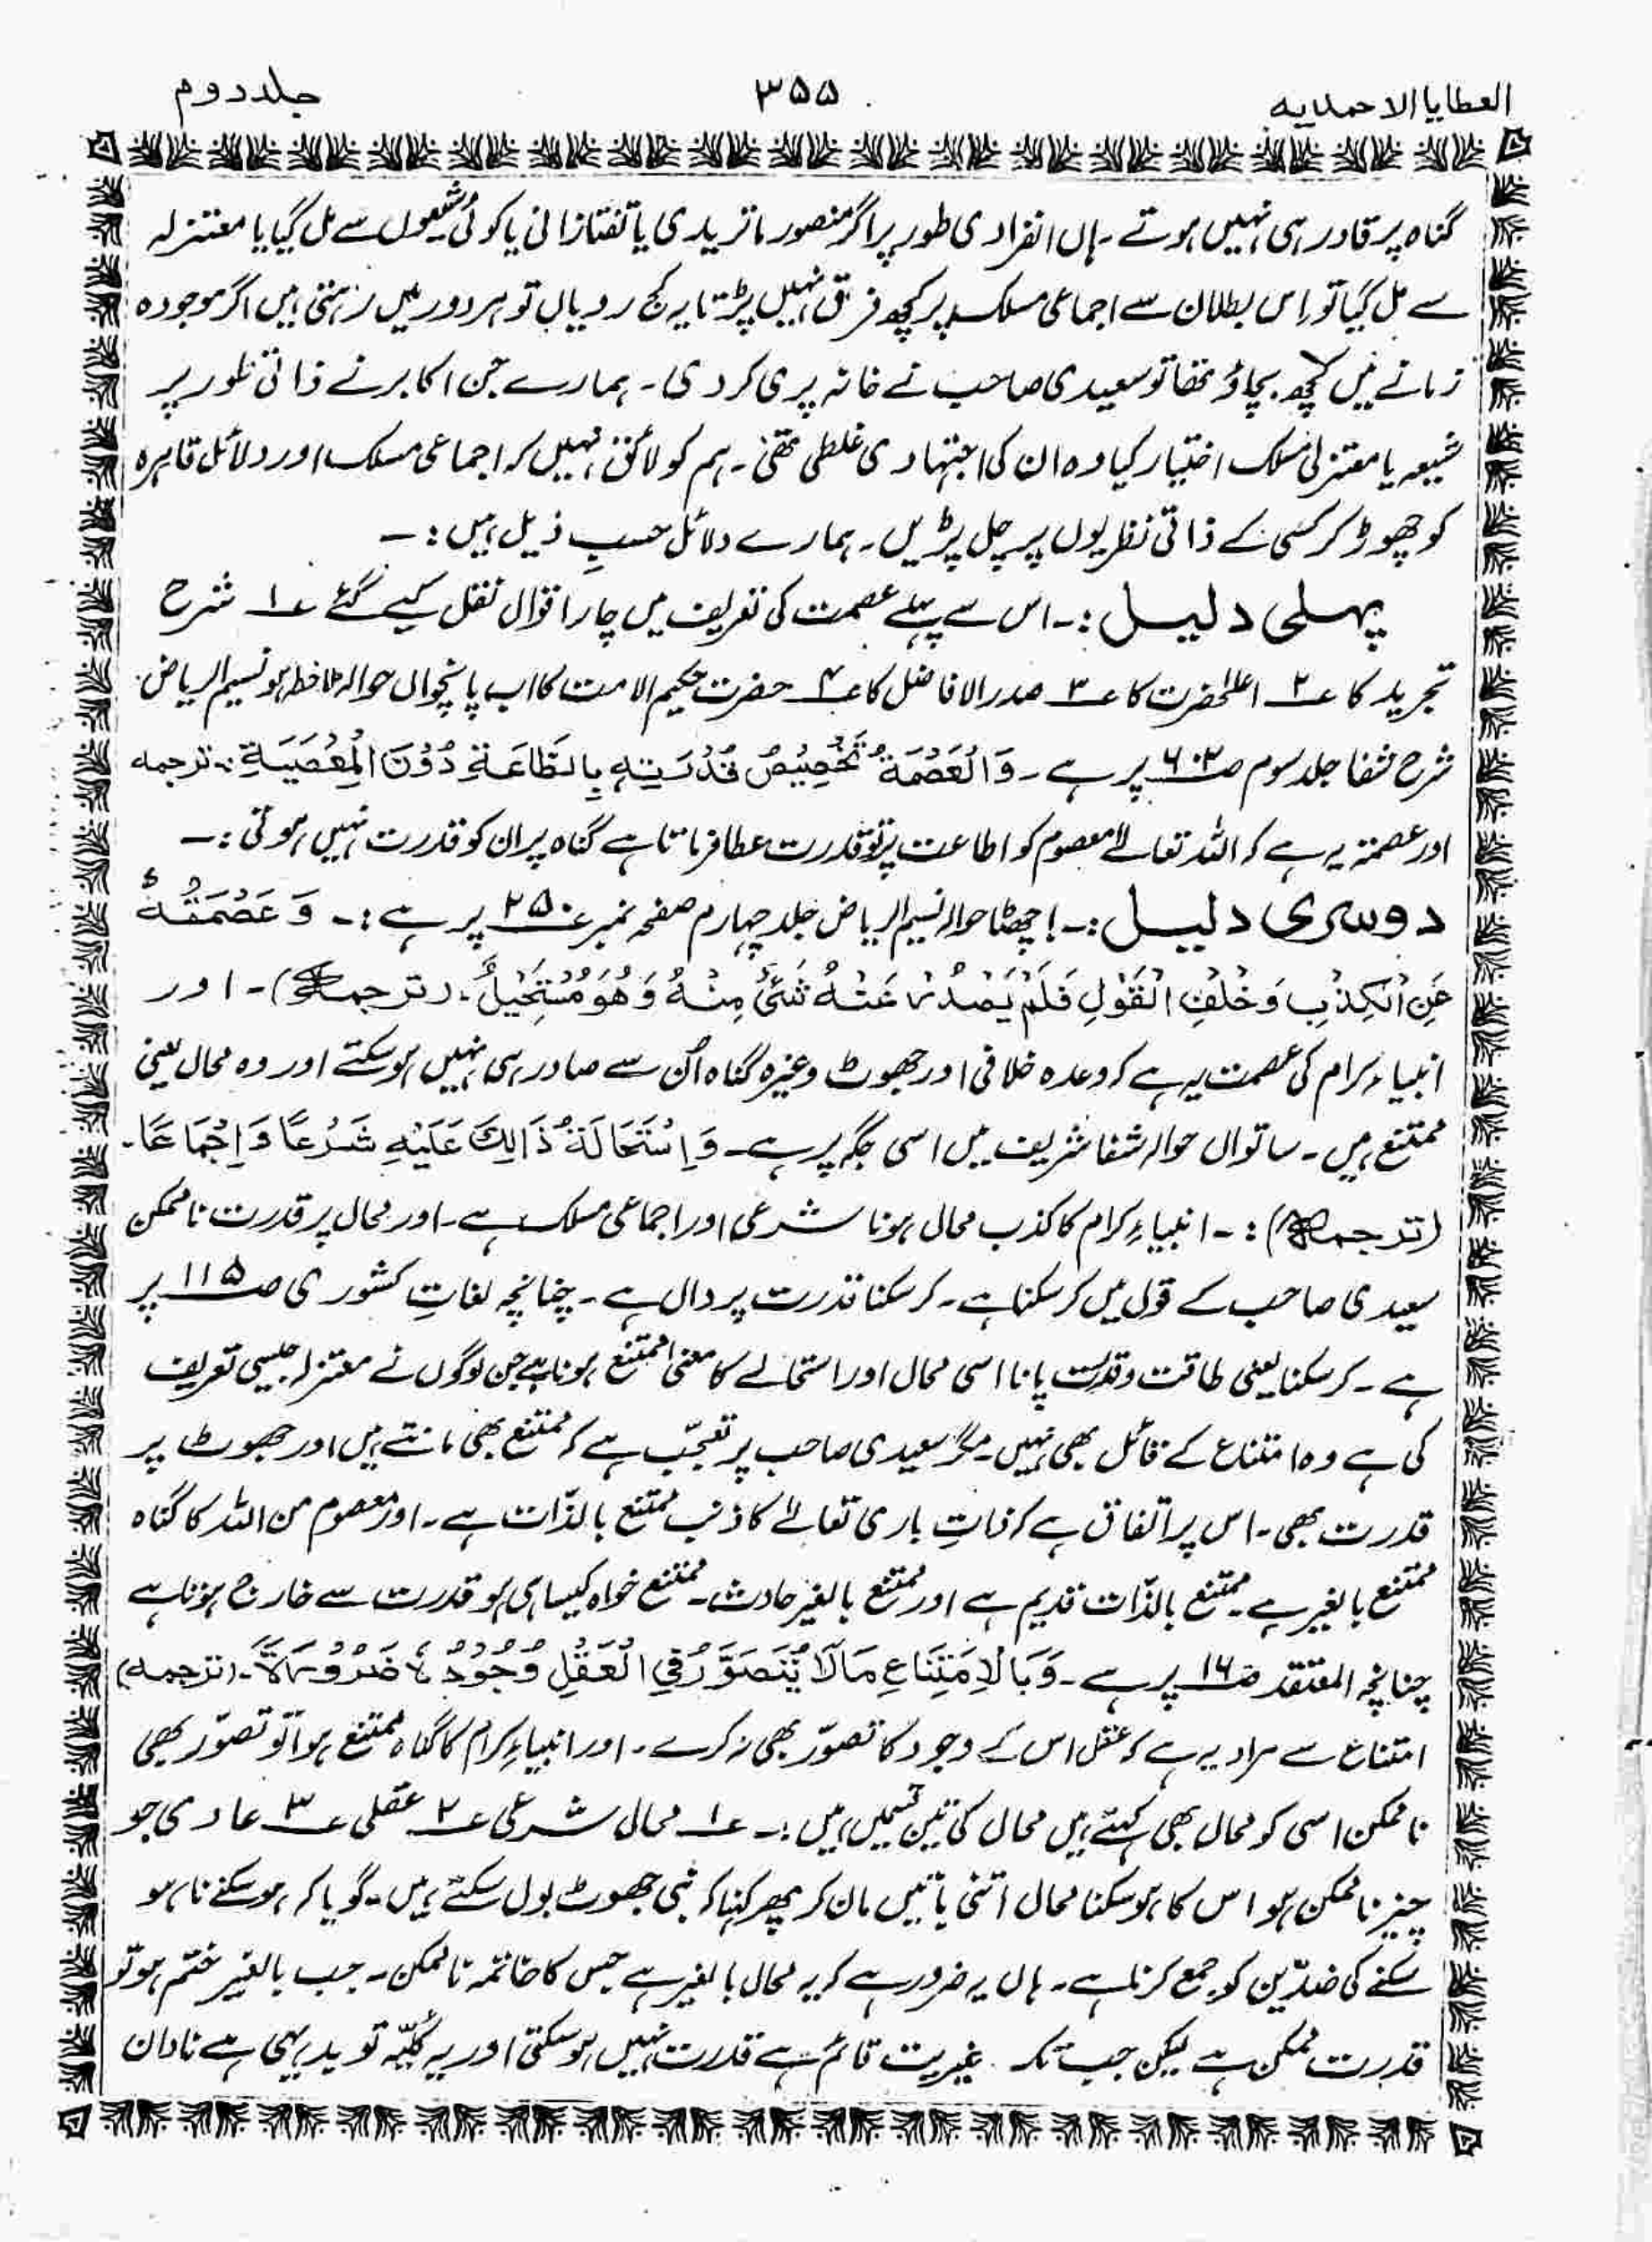 العطایا الاحمدیه ۳۵۵ جلد دوم
گناہ پر قادر ہی نہیں ہوتے ۔ ہاں انفرادی طور پر اگر منصور ماتریدی یا تفتازانی یا کوئی شیعوں سے مل گیا یا معتزلہ
سے مل گیا تو اس بطلان سے اجماعی مسلک پر کچھ فرق نہیں پڑتا یہ کج رویاں تو ہر دور میں رہتی ہیں اگر موجودہ
زمانے میں کچھ بچاؤ تھا تو سعیدی صاحب نے خانہ پری کر دی ۔ ہمارے جن اکابر نے ذاتی طور پر
شیعہ یا معتزلی مسلک اختیار کیا وہ ان کی اجتہادی غلطی تھی ۔ ہم کو لائق نہیں کہ اجماعی مسلک اور دلائل قاہرہ
کو چھوڑ کر کسی کے ذاتی نظریوں پر چل پڑیں ۔ ہمارے دلائل حسبِ ذیل ہیں :۔
پہلی دلیل :۔ اس سے پہلے عصمت کی تعریف میں چار اقوال نقل کیے گئے ؏۱ شرح
تجرید کا ؏۲ اعلیٰحضرت کا ؏۳ صدر الافاضل کا ؏۴ حضرت حکیم الامت کا اب پانچواں حوالہ ملاحظہ ہو نسیم الریاض
شرح شفا جلد سوم صـ۶۰۳ پر ہے ۔ وَالْعَصْمَةُ تَخْصِیْصُ قُدْرَتِهٖ بِالطَّاعَةِ دُوْنَ الْمِعْصَیَةِ ۔ ترجمہ
اور عصمۃ یہ ہے کہ اللہ تعالےٰ معصوم کو اطاعت پر تو قدرت عطا فرماتا ہے گناہ پر ان کو قدرت نہیں ہوتی :۔
دوسری دلیل :۔ چھٹا حوالہ نسیم الریاض جلد چہارم صفحہ نمبر ؏۲۵۰ پر ہے :۔ وَ عَصْمَتُهٗ
عَنِ الْکِذْبِ وَ خُلْفِ الْقَوْلِ فَلَمْ یَصْدُرْ عَنْهُ شَیْئٌ مِنْهُ وَ هُوَ مُسْتَحِیْلٌ ۔ (ترجمہ) ۔ اور
انبیاء کرام کی عصمت یہ ہے کہ وعدہ خلافی اور جھوٹ وغیرہ گناہ اُن سے صادر ہی نہیں ہو سکتے اور وہ محال یعنی
ممتنع ہیں ۔ ساتواں حوالہ شفا شریف میں اسی جگہ پر ہے ۔ وَ اِسْتَحَالَةُ ذَالِكَ عَلَیْهِ شَرْعًا وَ اِجْمَاعًا ۔
(ترجمہ) :۔ انبیاءِ کرام کا کذب محال ہونا شرعی اور اجماعی مسلک ہے ۔ اور محال پر قدرت ناممکن
سعیدی صاحب کے قول میں کر سکنا ہے ۔ کر سکنا قدرت پر دال ہے ۔ چنانچہ لغاتِ کشوری صـ۱۱۵ پر
ہے ۔ کر سکنا یعنی طاقت و قدرت پانا اسی محال اور استحالے کا معنی ممتنع ہونا ہے جن لوگوں نے معتزلہ جیسی تعریف
کی ہے وہ امتناع کے قائل بھی نہیں ۔ مگر سعیدی صاحب پر تعجّب ہے کہ ممتنع بھی مانتے ہیں اور جھوٹ پر
قدرت بھی ۔ اس پر اتفاق ہے کہ ذاتِ باری تعالےٰ کا ذنب ممتنع بالذّات ہے ۔ اور معصوم من اللہ کا گناہ
ممتنع بالغیر ہے ۔ ممتنع بالذّات قدیم ہے اور ممتنع بالغیر حادث ۔ ممتنع خواہ کیسا ہی ہو قدرت سے خارج ہوتا ہے
چنانچہ المعتقد صـ۱۶ پر ہے ۔ وَ بَالْاِمَتِنَاعِ مَالَا یُتَصَوَّرُ فِی الْعَقْلِ وُجُوْدُهٗ ضَرُوْرَةً ۔ (ترجمہ)
امتناع سے مراد یہ ہے کہ عقل اس کے وجود کا تصوّر بھی نہ کرے ۔ اور انبیاءِ کرام کا گناہ ممتنع ہوا تو تصوّر بھی
ناممکن اسی کو محال بھی کہتے ہیں محال کی تین قسمیں ہیں :۔ ؏۱ محال شرعی ؏۲ عقلی ؏۳ عادی جو
چیز ناممکن ہو اس کا ہو سکنا محال اتنی باتیں مان کر پھر کہنا کہ نبی جھوٹ بول سکتے ہیں ۔ گویا کہ ہو سکنے نا ہو
سکنے کی ضدّین کو جمع کرنا ہے ۔ ہاں یہ ضرور ہے کہ یہ محال بالغیر ہے جس کا خاتمہ ناممکن ۔ جب بالغیر ختم ہو تو
قدرت ممکن ہے لیکن جب تک غیریت قائم ہے قدرت نہیں ہو سکتی اور یہ کُلیّہ تو بدیہی ہے نادان